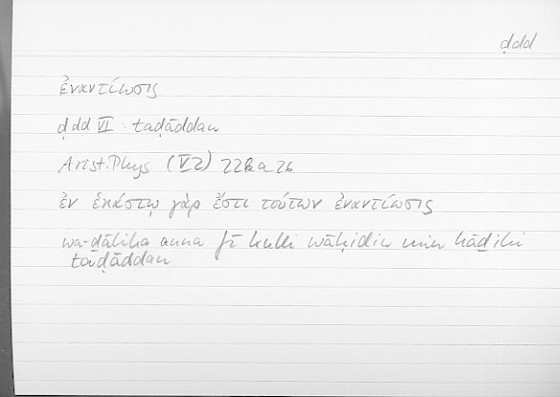 ḍdd
ἐναντίωσις
ḍdd VI : taḍāddan
Arist. Phys (V2) 226 a 26
ἐν ἑκάστῳ γάρ ἔστι τούτων ἐναντίωσις
wa-ḏālika anna fī kulli wāḥidin min hāḏihi
taḍāddan